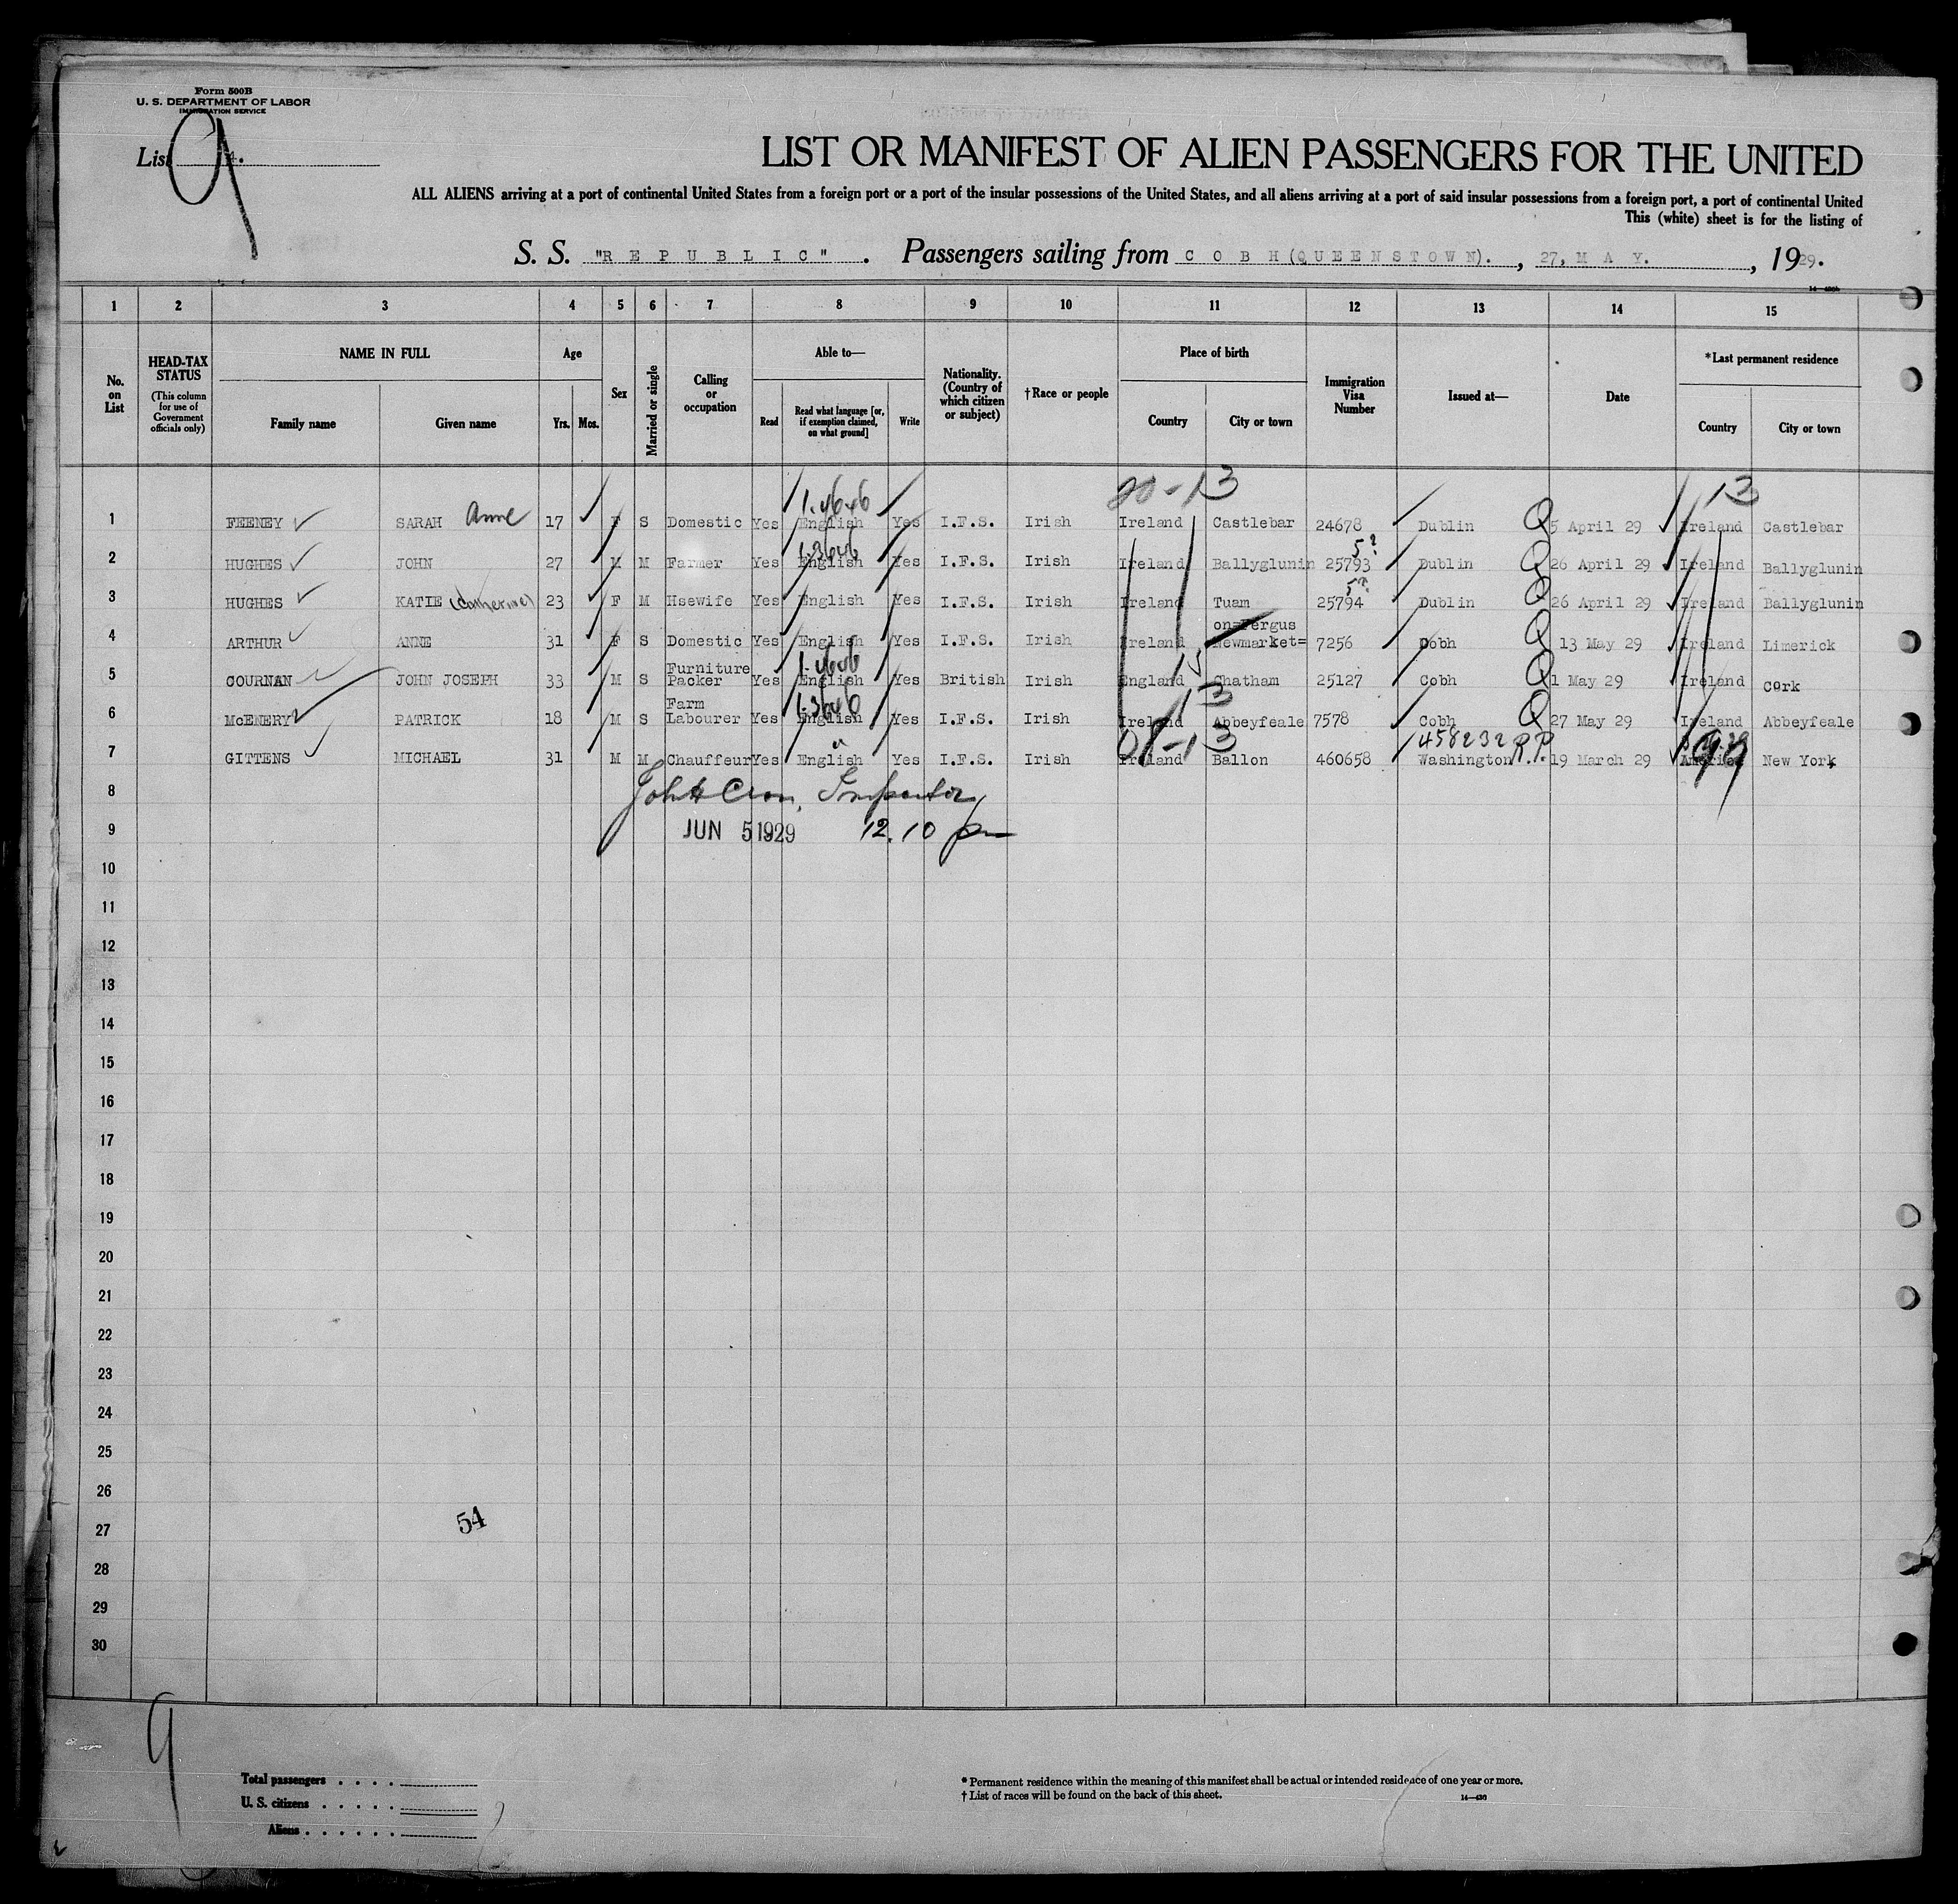 Form 500B
U. S. DEPARTMENT OF LABOR
IMMIGRATION SERVICE
List 4. 9
LIST OR MANIFEST OF ALIEN PASSENGERS FOR THE UNITED
ALL ALIENS arriving at a port of continental United States from a foreign port or a port of the insular possessions of the United States, and all aliens arriving at a port of said insular possessions from a foreign port, a port of continental United
This (white) sheet is for the listing of
S. S. "REPUBLIC". Passengers sailing from COBH (QUEENSTOWN). , 27, MAY. , 1929.
1 2 3 4 5 6 7 8 9 10 11 12 13 14 15
No. on List
HEAD-TAX STATUS
(This column for use of Government officials only)
NAME IN FULL
Family name
Given name
Age
Yrs. Mos.
Sex
Married or single
Calling or occupation
Able to—
Read
Read what language [or, if exemption claimed, on what ground]
Write
Nationality. (Country of which citizen or subject)
†Race or people
Place of birth
Country
City or town
Immigration Visa Number
Issued at—
Date
*Last permanent residence
Country
City or town
20-13 13
1 FEENEY SARAH Anne 17 F S Domestic Yes English Yes I.F.S. Irish Ireland Castlebar 24678 Dublin Q 5 April 29 Ireland Castlebar
2 HUGHES JOHN 27 M M Farmer Yes English Yes I.F.S. Irish Ireland Ballyglunin 25793 Dublin Q 26 April 29 Ireland Ballyglunin
3 HUGHES KATIE (Catherine) 23 F M Hsewife Yes English Yes I.F.S. Irish Ireland Tuam 25794 Dublin Q 26 April 29 Ireland Ballyglunin
on=Fergus
4 ARTHUR ANNE 31 F S Domestic Yes English Yes I.F.S. Irish Ireland Newmarket= 7256 Cobh Q 13 May 29 Ireland Limerick
Furniture
5 COURNAN JOHN JOSEPH 33 M S Packer Yes English Yes British Irish England Chatham 25127 Cobh Q 1 May 29 Ireland Cork
Farm 13
6 McENERY PATRICK 18 M S Labourer Yes English Yes I.F.S. Irish Ireland Abbeyfeale 7578 Cobh Q 27 May 29 Ireland Abbeyfeale
01-13 458232 R.P. 99
7 GITTENS MICHAEL 31 M M Chauffeur Yes English Yes I.F.S. Irish Ireland Ballon 460658 Washington 19 March 29 America New York
8 Inspector
9 JUN 5 1929 12.10 pm
10
11
12
13
14
15
16
17
18
19
20
21
22
23
24
25
26
54
27
28
29
30
9
Total passengers
U. S. citizens
Aliens
* Permanent residence within the meaning of this manifest shall be actual or intended residence of one year or more.
† List of races will be found on the back of this sheet.
14—430